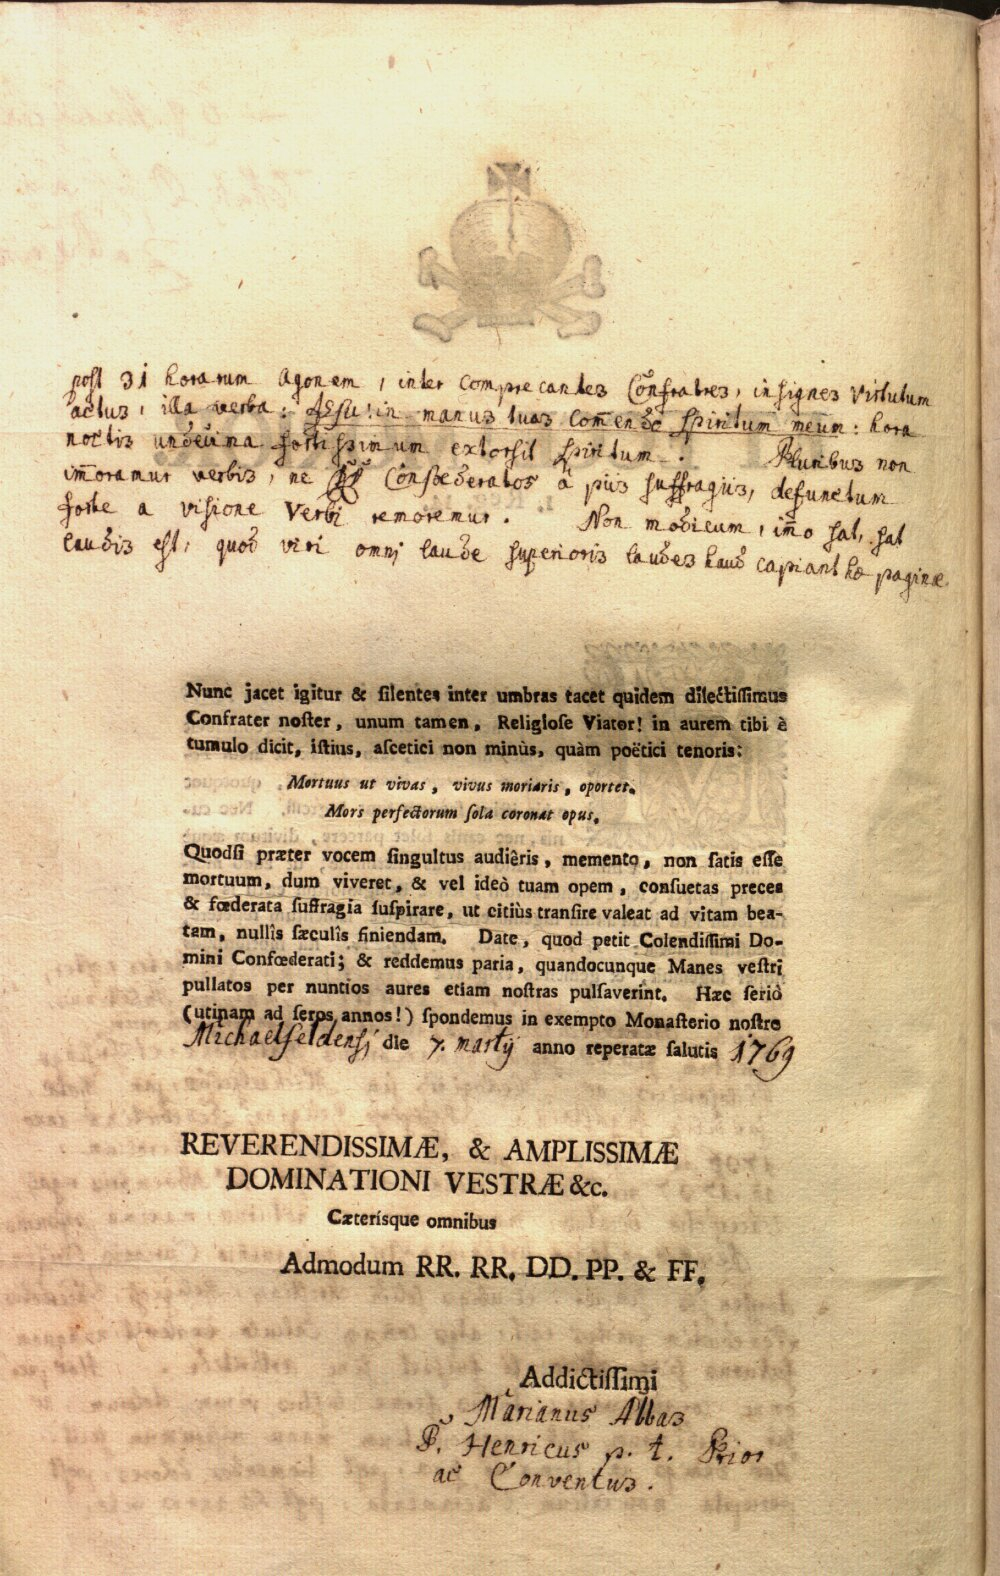 post 31 horarum agonem, inter comprecantes Confratres, insignes Virtutum
actus, illa verba: Jesu! in manus tuas Com̄endo spiritum meum: hora
noctis undecima fortissimum extorsit spiritum. Pluribus non
im̄oramur verbis, ne PP. Confoederatos â piis suffragiis, defunctum
forte a visione Verbi remoremur. Non modicum, im̄o sat, sat
laudis est, quod viri omni laude superioris laudes haud capiant hæ paginæ
Nunc jacet igitur & ſilentes inter umbras tacet quidem dilectiſſimus
Confrater noſter, unum tamen, Religioſe Viator! in aurem tibi è
tumulo dicit, iſtius, aſcetici non minùs, quàm poëtici tenoris:
Mortuus ut vivas, vivus moriaris, oportet.
Mors perfectorum ſola coronat opus.
Quodſi præter vocem ſingultus audiêris, memento, non ſatis eſſe
mortuum, dum viveret, & vel ideò tuam opem, conſuetas preces
& fœderata ſuffragia ſuſpirare, ut citiùs tranſire valeat ad vitam bea-
tam, nullîs ſæculîs finiendam. Date, quod petit Colendiſſimi Do-
mini Confœderati; & reddemus paria, quandocunque Manes veſtri
pullatos per nuntios aures etiam noſtras pulſaverint. Hæc ſeriò
(utinam ad ſeros annos!) ſpondemus in exempto Monaſterio noſtro
Michaelfeldensi die 7. martij anno reperatæ ſalutis 1769
REVERENDISSIMÆ, & AMPLISSIMÆ
DOMINATIONI VESTRÆ &c.
Cæterísque omnibus
Admodum RR. RR. DD. PP. & FF.
Addictiſſimi
Marianus Abbas
P. Henricus p. t. Prior
ac Conventus.